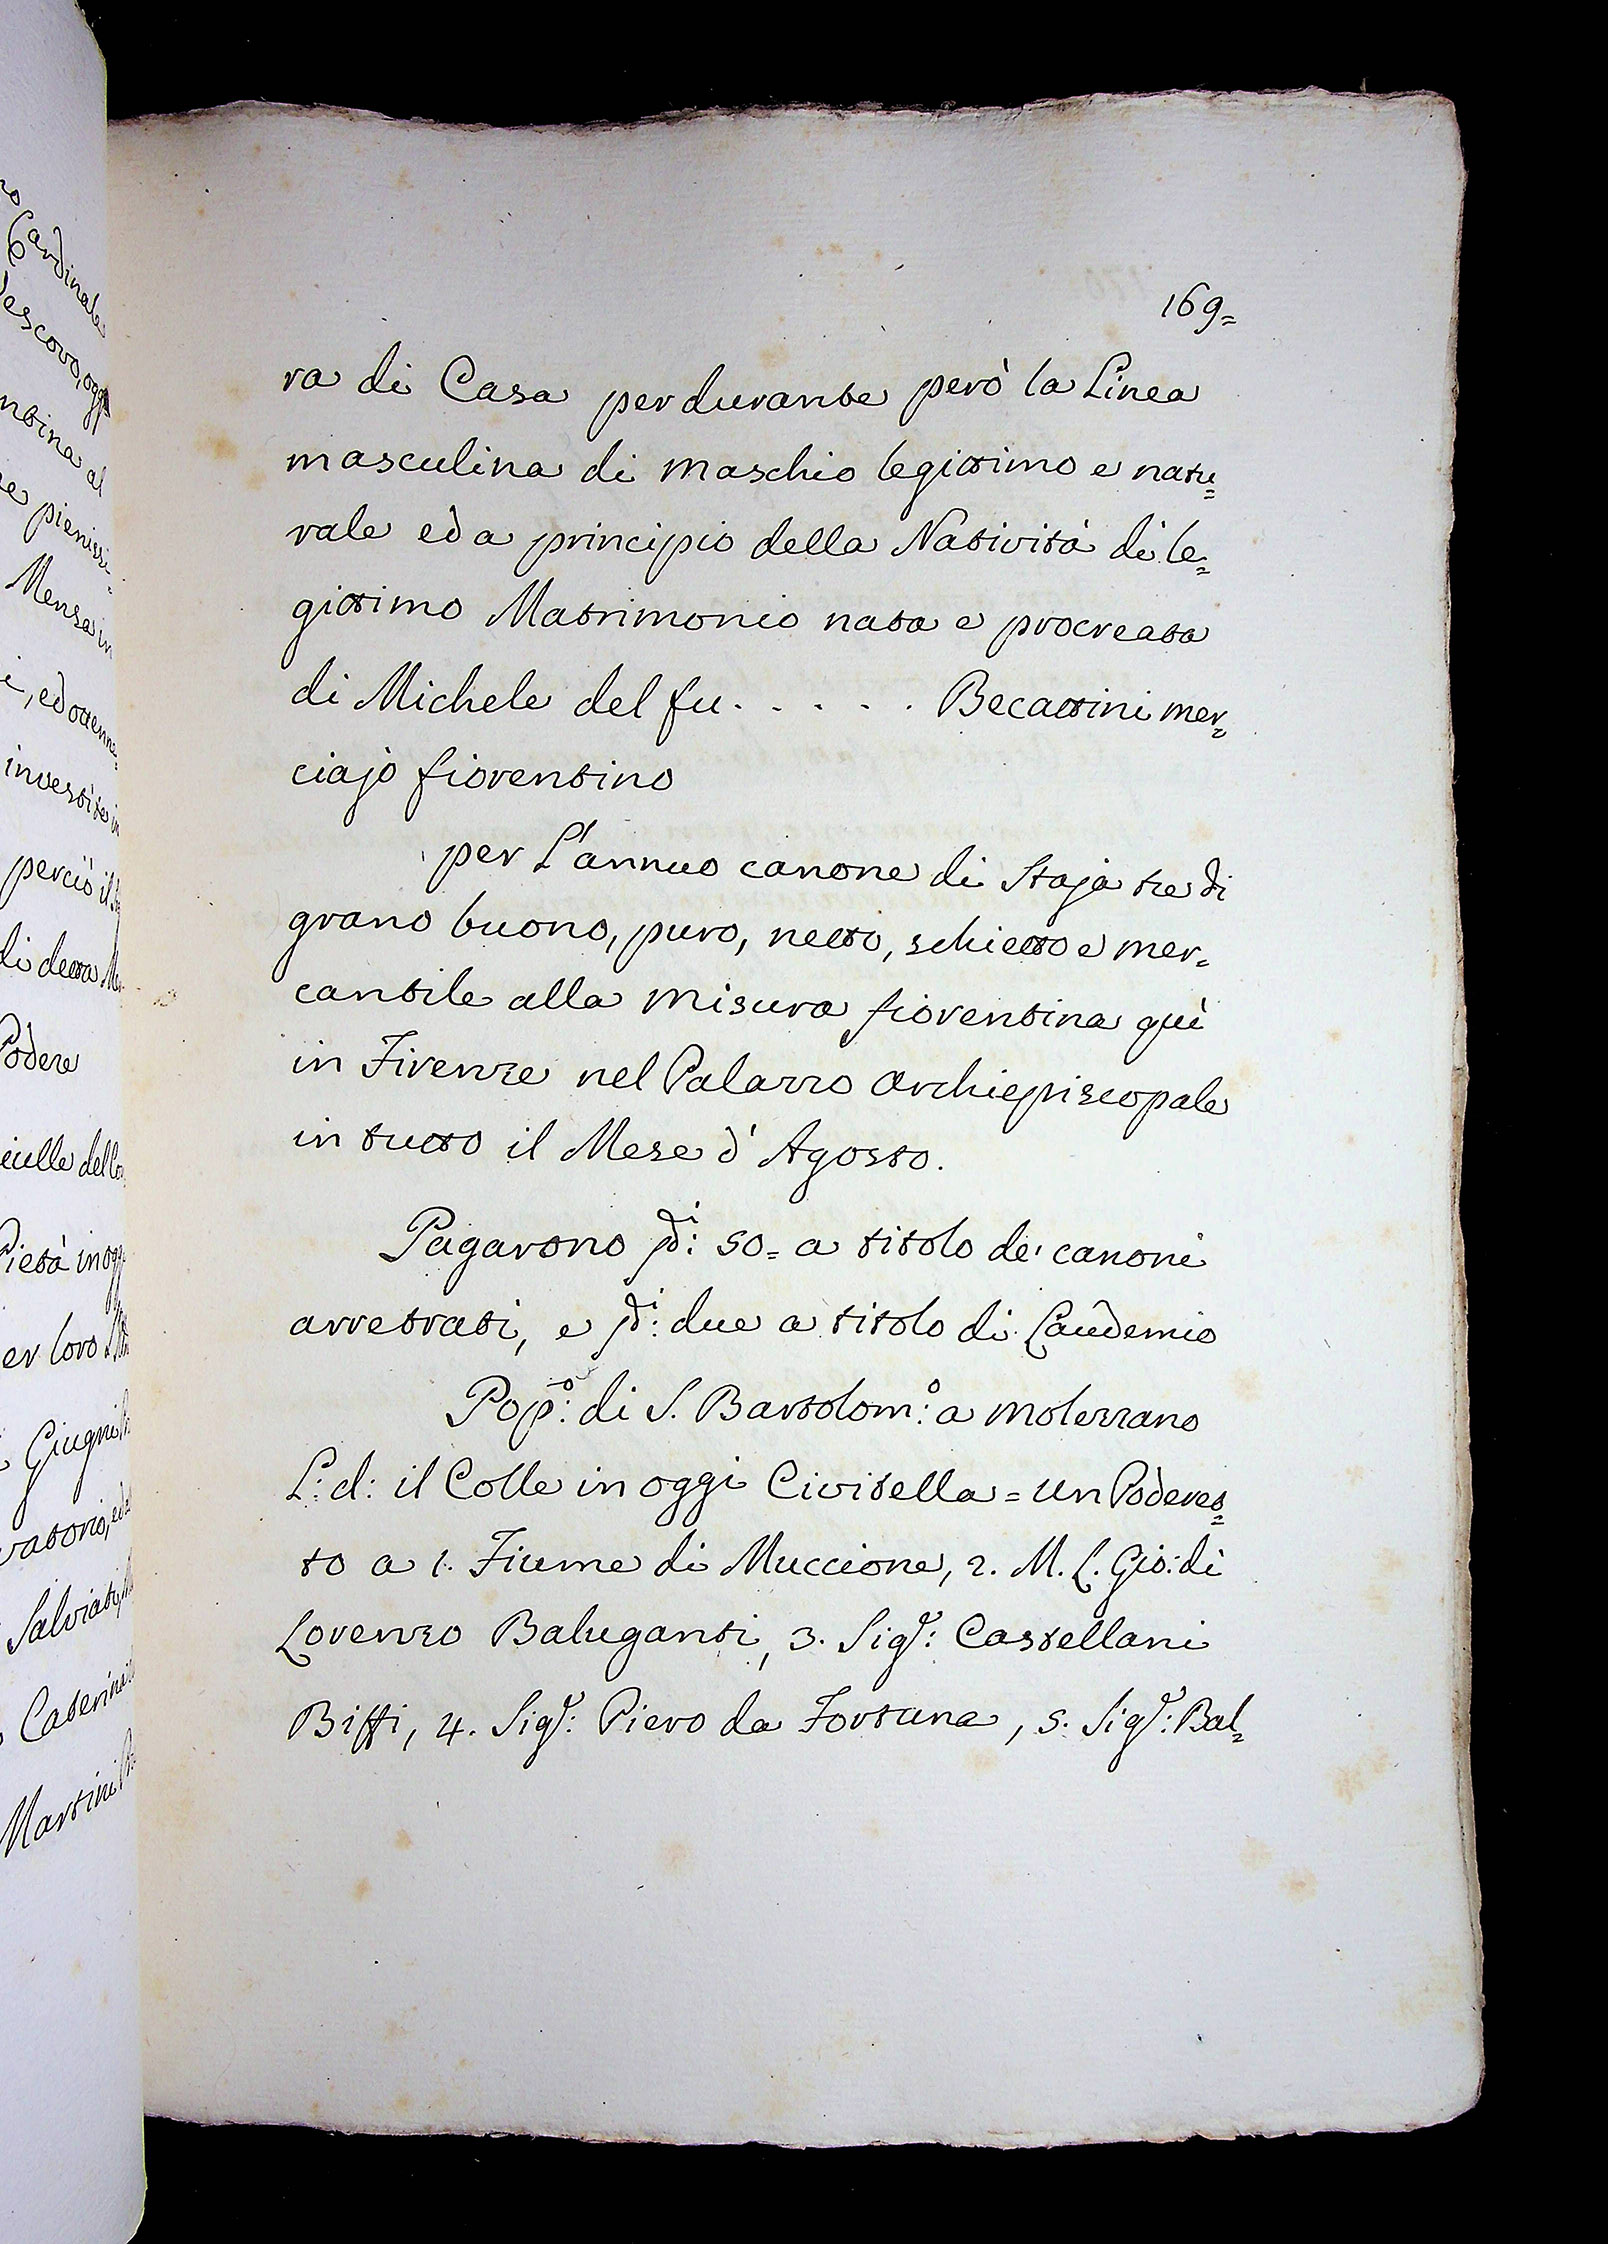 169=
ra di Casa perdurante però la Linea
masculina di maschio legittimo e natu=
rale ed a principio della Natività di le=
gittimo Matrimonio nata e procreata
di Michele del fu. . . . . Becattini mer=
ciajo fiorentino
per L'annuo canone di Staja tre di
grano buono, puro, netto, schietto e mer=
cantile alla misura fiorentina quì
in Firenze nel Palazzo Archiepiscopale
in tutto il Mese d'Agosto.
Pagarono 50= a titolo de' canoni
arretrati, e due a titolo di Laudemio
Popo: di S. Bartolomo: a Molezzano
L: d: il Colle in oggi Civitella = Un Poderet=
to a 1. Fiume di Muccione, 2. M. L. Gio: di
Lorenzo Baluganti, 3. Sigr: Castellani
Biffi, 4. Sigr: Piero da Fortuna, 5. Sigr: Bal=
Cardinale
Vescovo, oggi
ntina al
pienissi=
Mensa in
, ed ottenne
investite in
perciò il
di detta
Podere
ciulle dello
Pietà in ogg
er loro
Giugni
vatorio, ed
Salviati,
Caterina
Martini